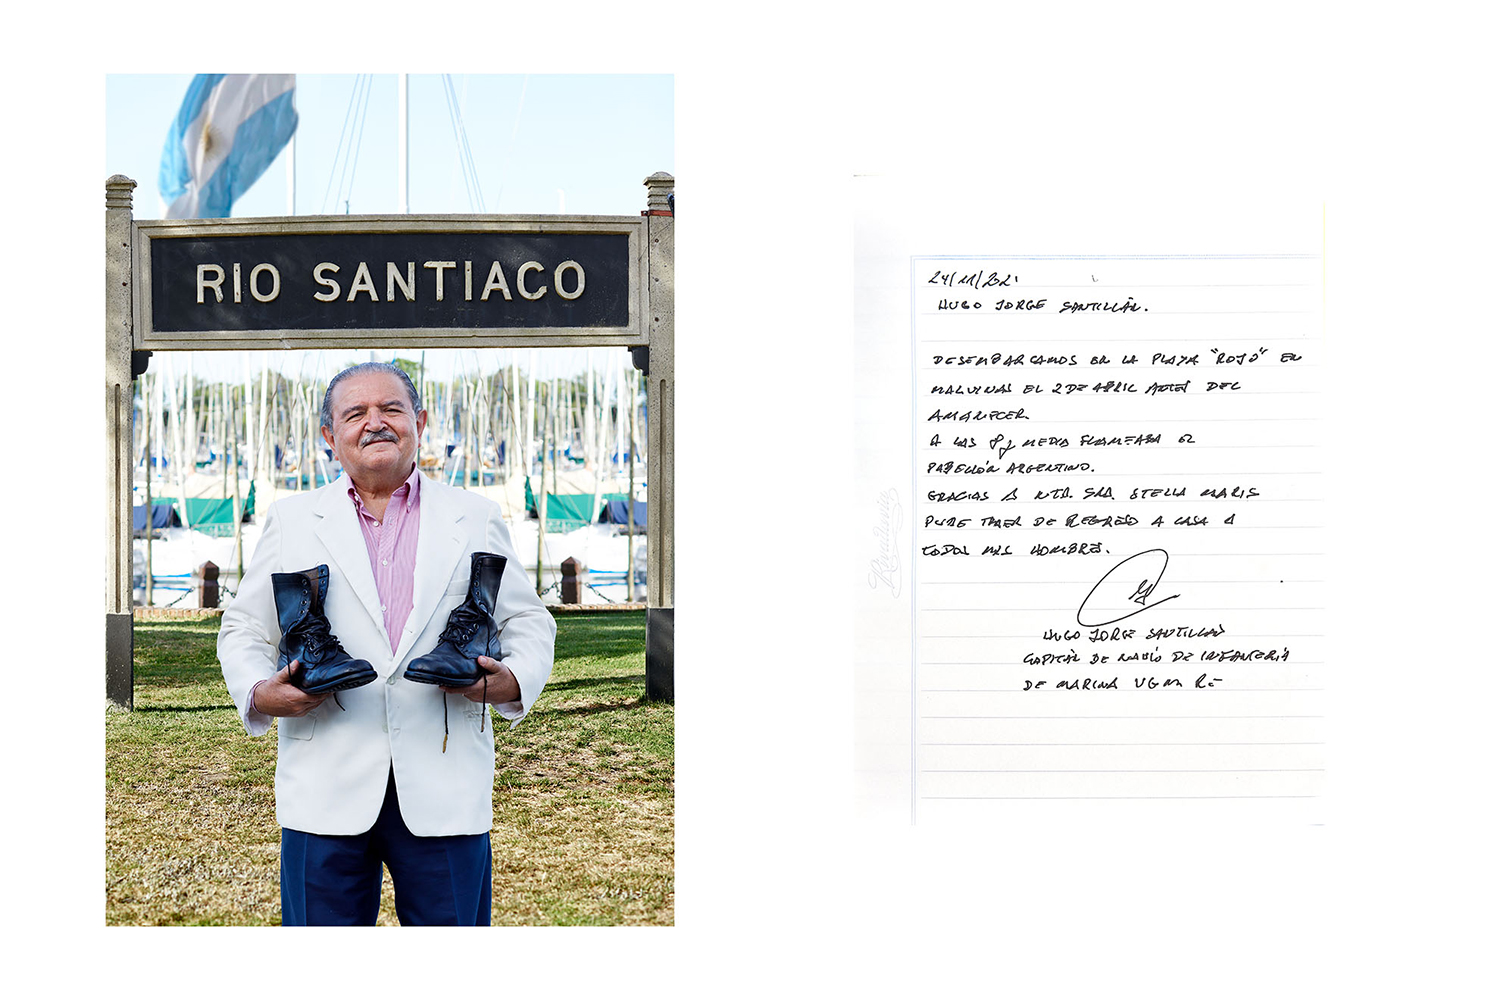 RIO SANTIAGO
24/11/2021
HUGO JORGE SANTILLÁN.
DESEMBARCAMOS EN LA PLAYA "ROJO" EN
MALVINAS EL 2 DE ABRIL ANTES DEL
AMANECER.
A LAS 8 y MEDIA FLAMEABA EL
PABELLÓN ARGENTINO.
GRACIAS A NTA. SRA. STELLA MARIS
PUDE TRAER DE REGRESO A CASA A
TODOS MIS HOMBRES.
HUGO JORGE SANTILLÁN
CAPITÁN DE NAVÍO DE INFANTERÍA
DE MARINA VGM RE
Rivadavia